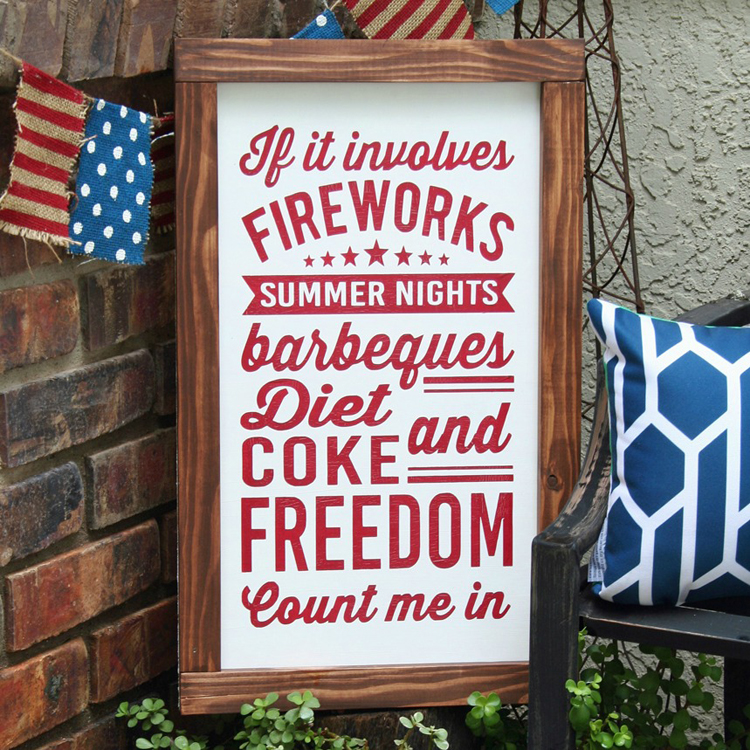 If it involves
FIREWORKS
SUMMER NIGHTS
barbeques
Diet
COKE and
FREEDOM
Count me in